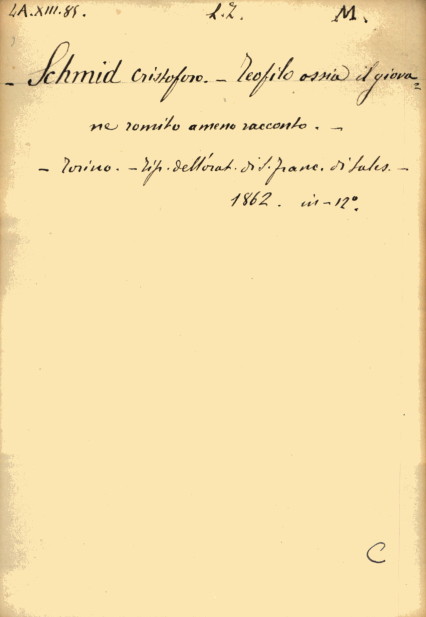 4A.XIII.85. L.Z. M.
– Schmid Cristoforo. – Teofilo ossia il giova=
ne romito ameno racconto. –
– Torino. – Tip. dell'Orat. di S. Franc. di Sales. –
1862. in-12°.
C